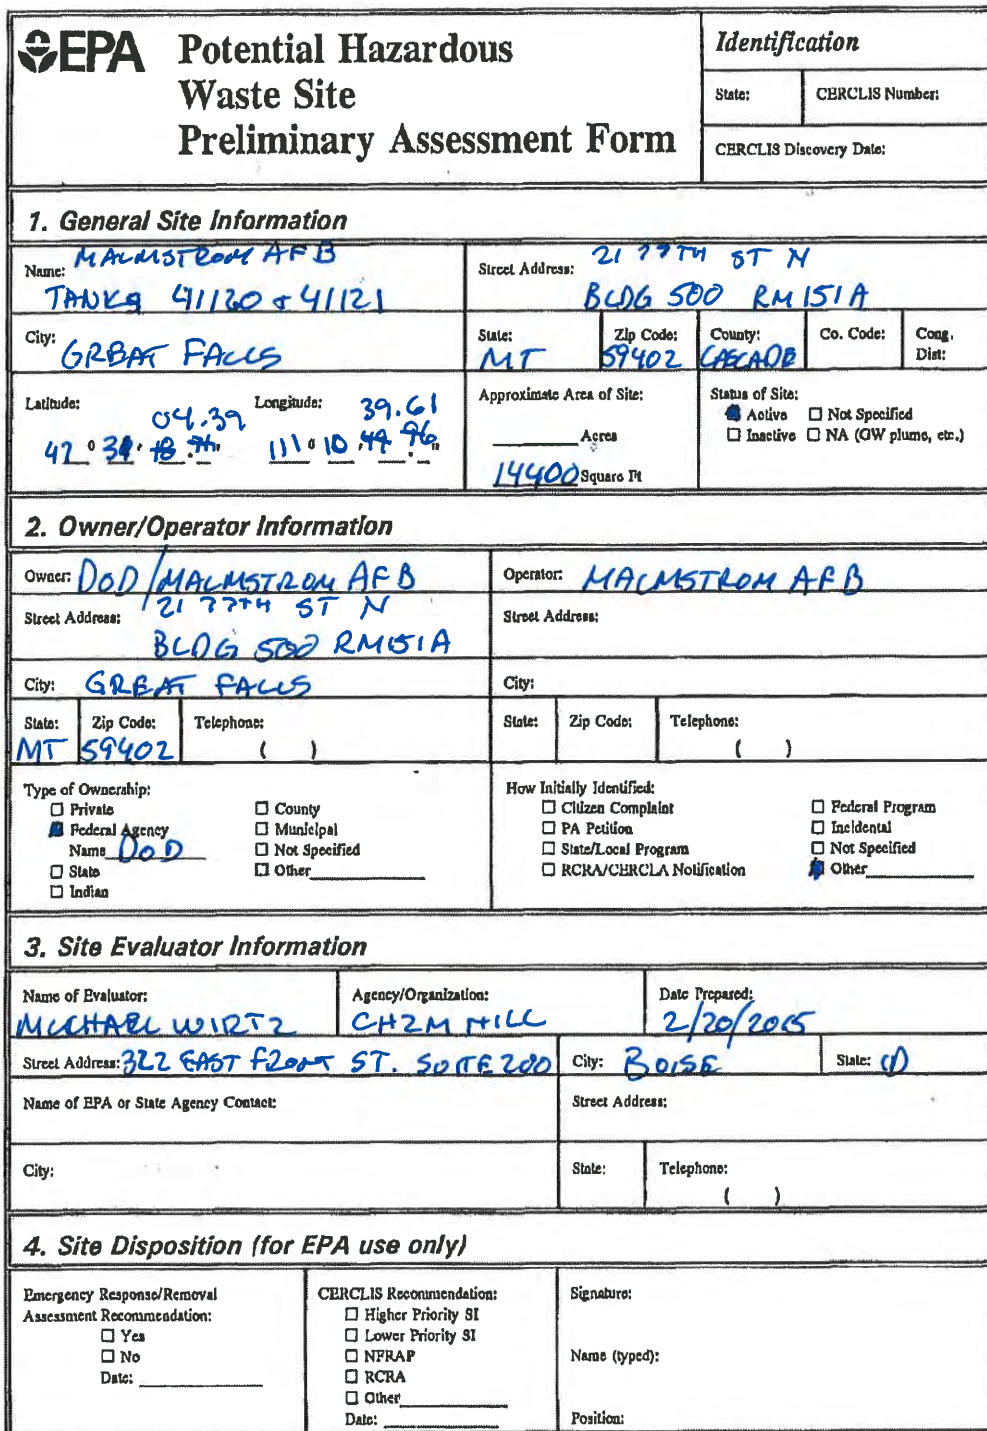 EPA Potential Hazardous
Waste Site
Preliminary Assessment Form
Identification
State: CERCLIS Number:
CERCLIS Discovery Date:
1. General Site Information
Name: MALMSTROM AFB
TANKS 41120 & 41121
Street Address: 21 77TH ST N
BLDG 500 RM 151A
City: GREAT FALLS
State: MT
Zip Code: 59402
County: CASCADE
Co. Code:
Cong. Dist:
Latitude: Longitude:
04.39 39.61
111° 10'
Approximate Area of Site:
Acres
14400 Square Ft
Status of Site:
Active Not Specified
Inactive NA (GW plume, etc.)
2. Owner/Operator Information
Owner: DOD/MALMSTROM AFB
Street Address: 21 77TH ST N
BLDG 500 RM151A
City: GREAT FALLS
State: MT
Zip Code: 59402
Telephone: ( )
Operator: MALMSTROM AFB
Street Address:
City:
State: Zip Code: Telephone: ( )
Type of Ownership:
Private County
Federal Agency Municipal
Name DOD Not Specified
State Other
Indian
How Initially Identified:
Citizen Complaint Federal Program
PA Petition Incidental
State/Local Program Not Specified
RCRA/CERCLA Notification Other
3. Site Evaluator Information
Name of Evaluator: MICHAEL WIRTZ
Agency/Organization: CH2M HILL
Date Prepared: 2/20/2015
Street Address: 322 EAST FRONT ST. SUITE 200
City: BOISE
State: ID
Name of EPA or State Agency Contact:
Street Address:
City:
State: Telephone: ( )
4. Site Disposition (for EPA use only)
Emergency Response/Removal
Assessment Recommendation:
Yes
No
Date:
CERCLIS Recommendation:
Higher Priority SI
Lower Priority SI
NFRAP
RCRA
Other
Date:
Signature:
Name (typed):
Position: